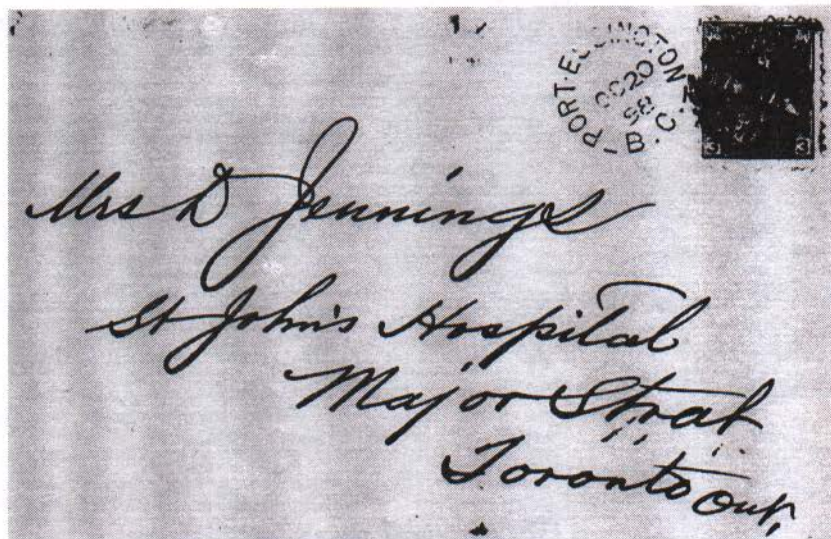 PORT-ESSINGTON B.C.
OC 20
98
3 3
Mrs D Jennings
St John's Hospital
Major Street
Toronto Ont,